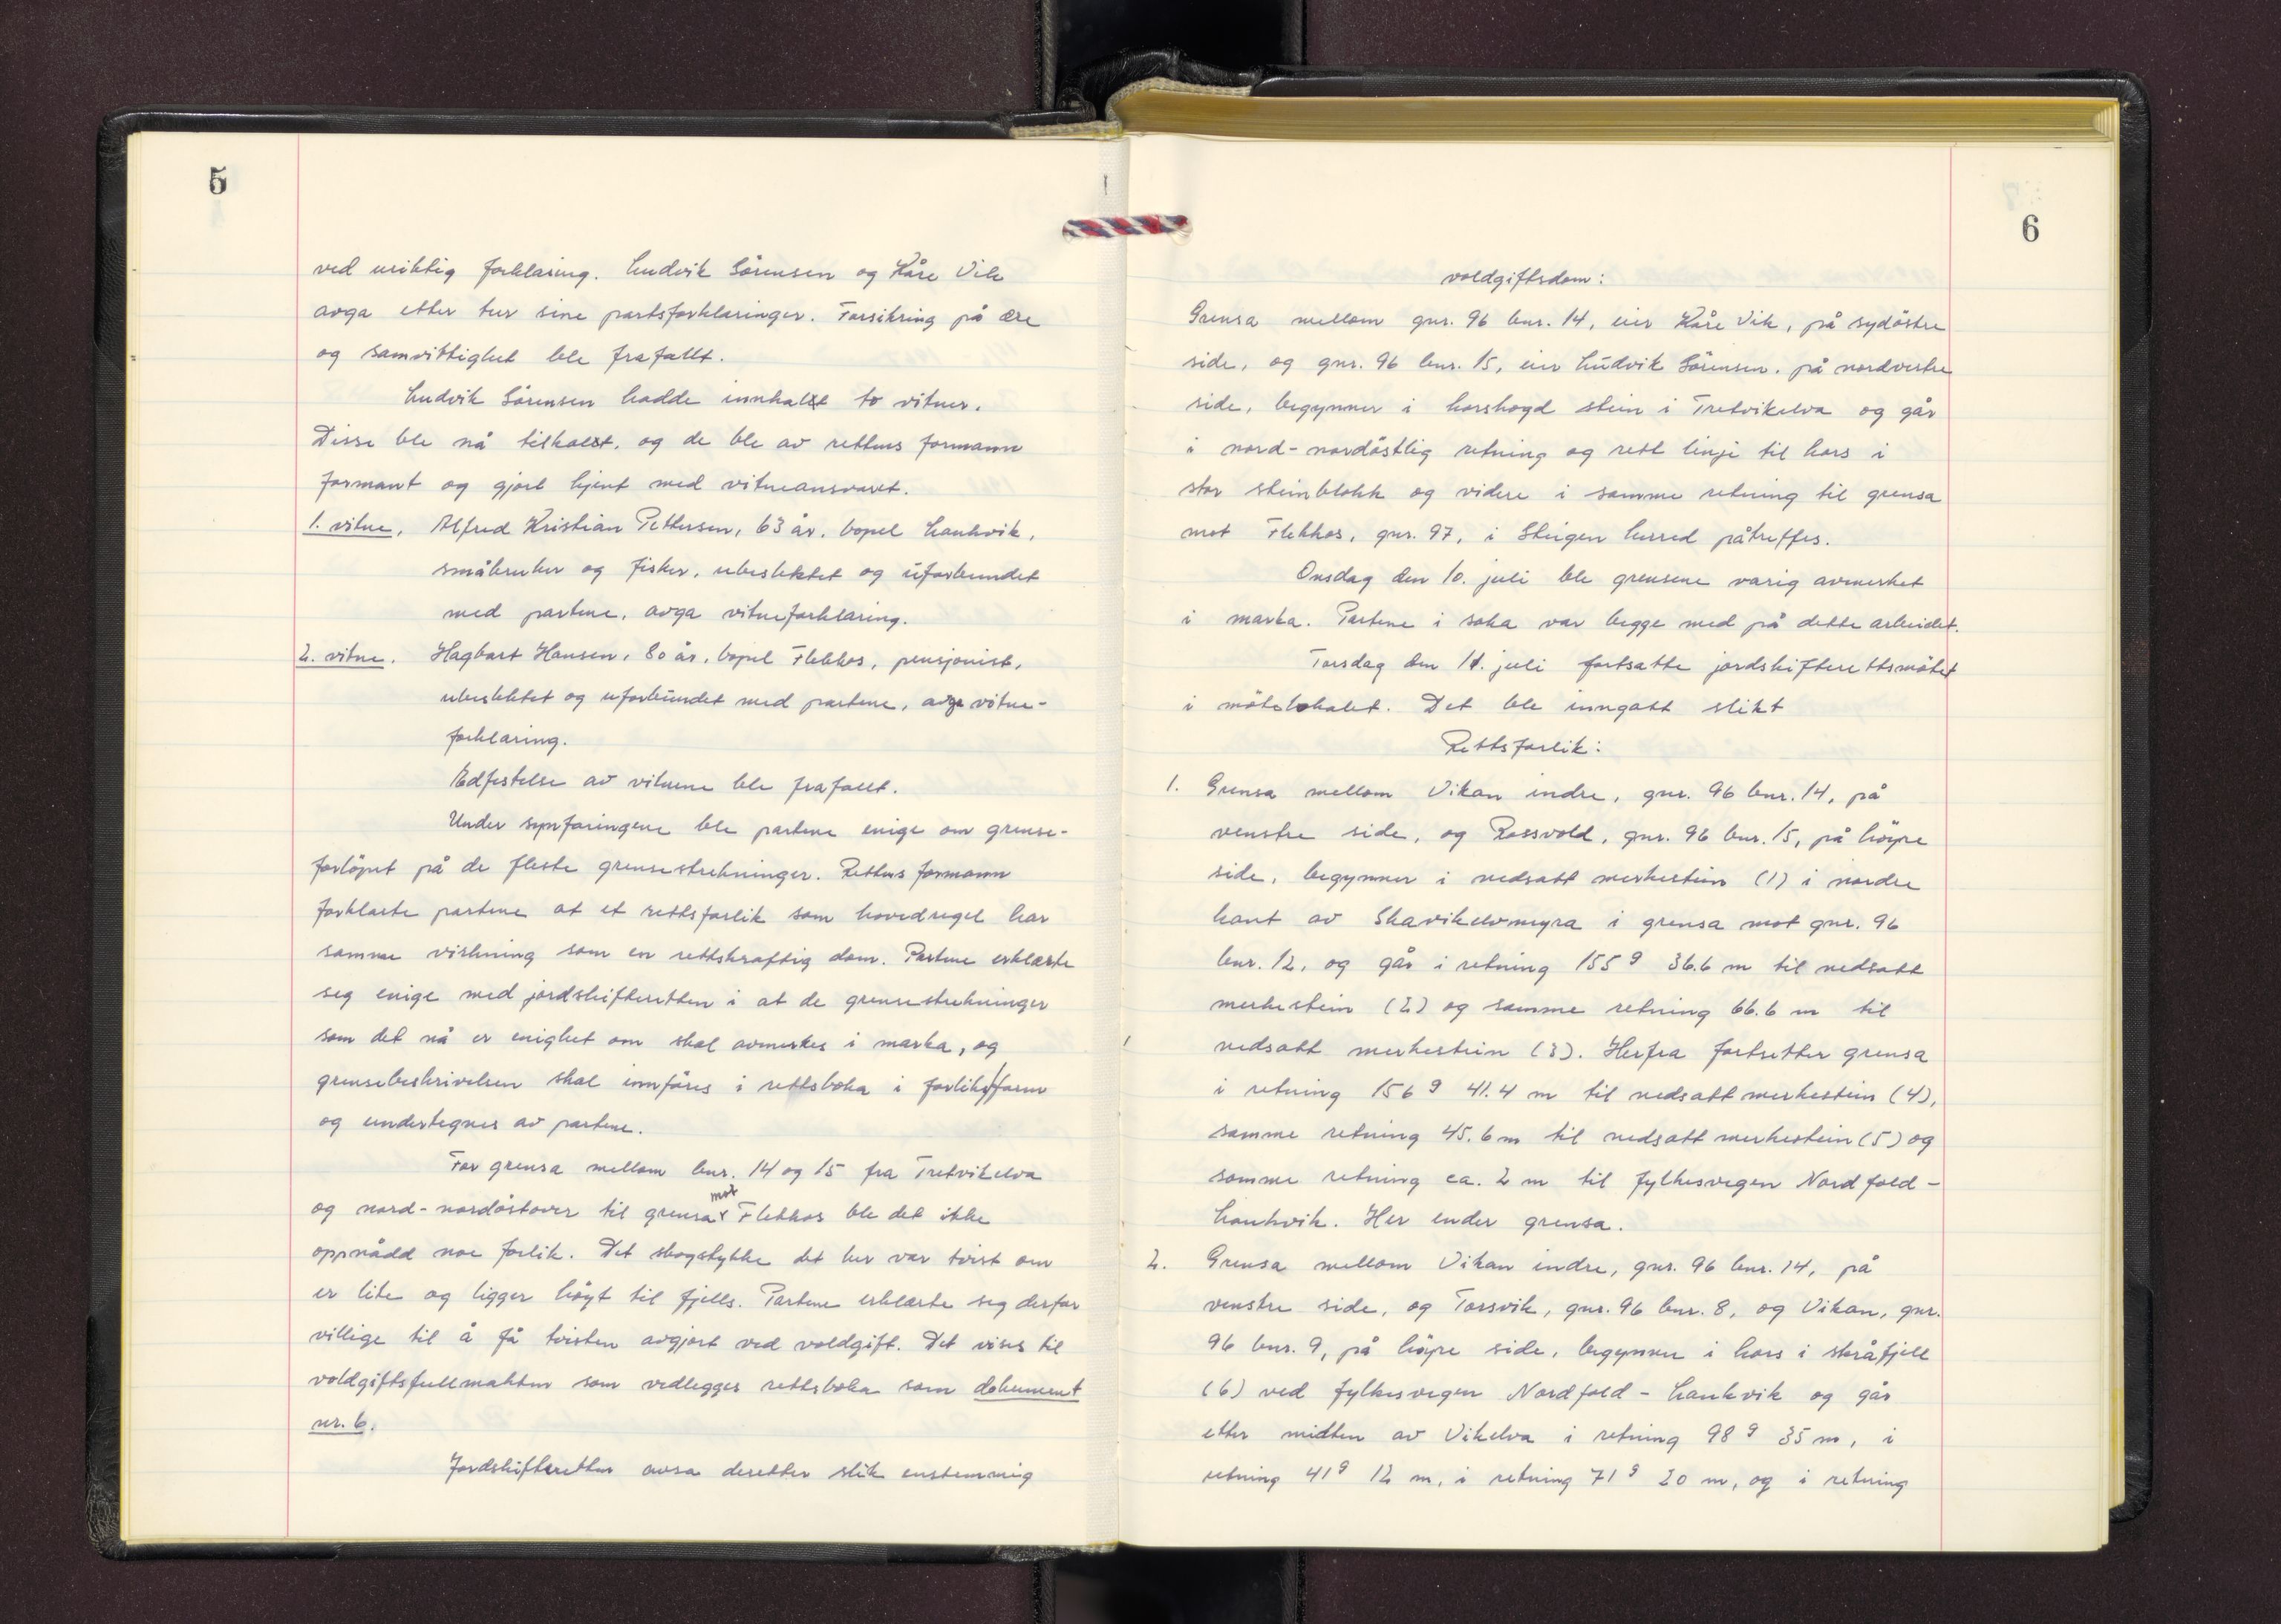 5
ved uriktig forklaring. Ludvik Sörensen og Kåre Vik
avga etter tur sine partsforklaringer. Forsikring på ære
og samvittighet ble frafallt.
Ludvik Sörensen hadde innkalt to vitner.
Disse ble nå tilkalt, og de ble av rettens formann
formant og gjort kjent med vitneansvaret.
1. vitne. Alfred Kristian Pettersen, 63 år, bopel Lankvik,
småbruker og fisker, ubeslektet og uforbundet
med partene, avga vitneforklaring.
2. vitne. Hagbart Hansen, 80 år, bopel Flekkos, pensjonist,
ubeslektet og uforbundet med partene, avga vitne-
forklaring.
Edfestelse av vitnene ble frafallt.
Under synfaringene ble partene enige om grense-
forlöpet på de fleste grensestrekninger. Rettens formann
forklarte partene at et rettsforlik som hovedregel har
samme virkning som en rettskraftig dom. Partene erklærte
seg enige med jordskifteretten i at de grensestrekninger
som det nå er enighet om skal avmerkes i marka, og
grensebeskrivelsen skal innföres i rettsboka i forliksform
og undertegnes av partene.
For grensa mellom bnr. 14 og 15 fra Tretvikelva
og nord-nordöstover til grensa mot Flekkos ble det ikke
oppnådd noe forlik. Det skogstykke det her var tvist om
er lite og ligger höyt til fjells. Partene erklærte seg derfor
villige til å få tvisten avgjort ved voldgift. Det vises til
voldgiftsfullmakten som vedlegges rettsboka som dokument
nr. 6.
Jordskifteretten avsa deretter slik enstemmig
6
voldgiftsdom:
Grensa mellom gnr. 96 bnr. 14, eier Kåre Vik, på sydöstre
side, og gnr. 96 bnr. 15, eier Ludvik Sörensen, på nordvestre
side, begynner i korshogd stein i Tretvikelva og går
i nord-nordöstlig retning og rett linje til kors i
stor steinblokk og videre i samme retning til grensa
mot Flekkos, gnr. 97, i Steigen herred påtreffes.
Onsdag den 10. juli ble grensene varig avmerket
i marka. Partene i saka var begge med på dette arbeidet.
Torsdag den 11. juli fortsatte jordskifterettsmötet
i mötelokalet. Det ble inngått slikt
Rettsforlik:
1. Grensa mellom Vikan indre, gnr. 96 bnr. 14, på
venstre side, og Rossvold, gnr. 96 bnr. 15, på höyre
side, begynner i nedsatt merkestein (1) i nordre
kant av Skavikelvmyra i grensa mot gnr. 96
bnr. 12, og går i retning 155 g 36.6 m til nedsatt
merkestein (2) og samme retning 66.6 m til
nedsatt merkestein (3). Herfra fortsetter grensa
i retning 156 g 41.4 m til nedsatt merkestein (4),
samme retning 45.6 m til nedsatt merkestein (5) og
samme retning ca. 2 m til fylkesvegen Nordfold-
Lankvik. Her ender grensa.
2. Grensa mellom Vikan indre, gnr. 96 bnr. 14, på
venstre side, og Torsvik, gnr. 96 bnr. 8, og Vikan, gnr.
96 bnr. 9, på höyre side, begynner i kors i skråfjell
(6) ved fylkesvegen Nordfold - Lankvik og går
etter midten av Vikelva i retning 98 g 35 m, i
retning 41 g 12 m, i retning 71 g 20 m, og i retning